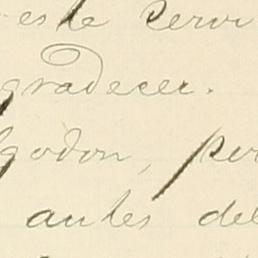 este servi
gradecer.
lgodon, per
antes del